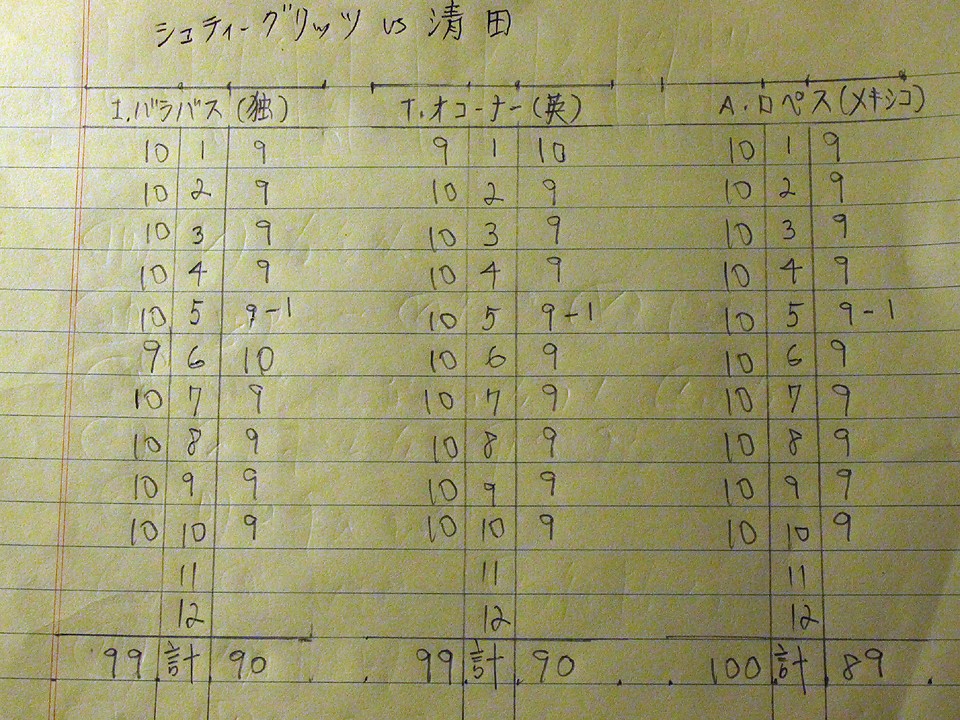 シュティーグリッツ vs 清田
I.バラバス(独) T.オコーナー(英) A.ロペス(メキシコ)
10 1 9 9 1 10 10 1 9
10 2 9 10 2 9 10 2 9
10 3 9 10 3 9 10 3 9
10 4 9 10 4 9 10 4 9
10 5 9-1 10 5 9-1 10 5 9-1
9 6 10 10 6 9 10 6 9
10 7 9 10 7 9 10 7 9
10 8 9 10 8 9 10 8 9
10 9 9 10 9 9 10 9 9
10 10 9 10 10 9 10 10 9
11 11 11
12 12 12
99 計 90 99 計 90 100 計 89